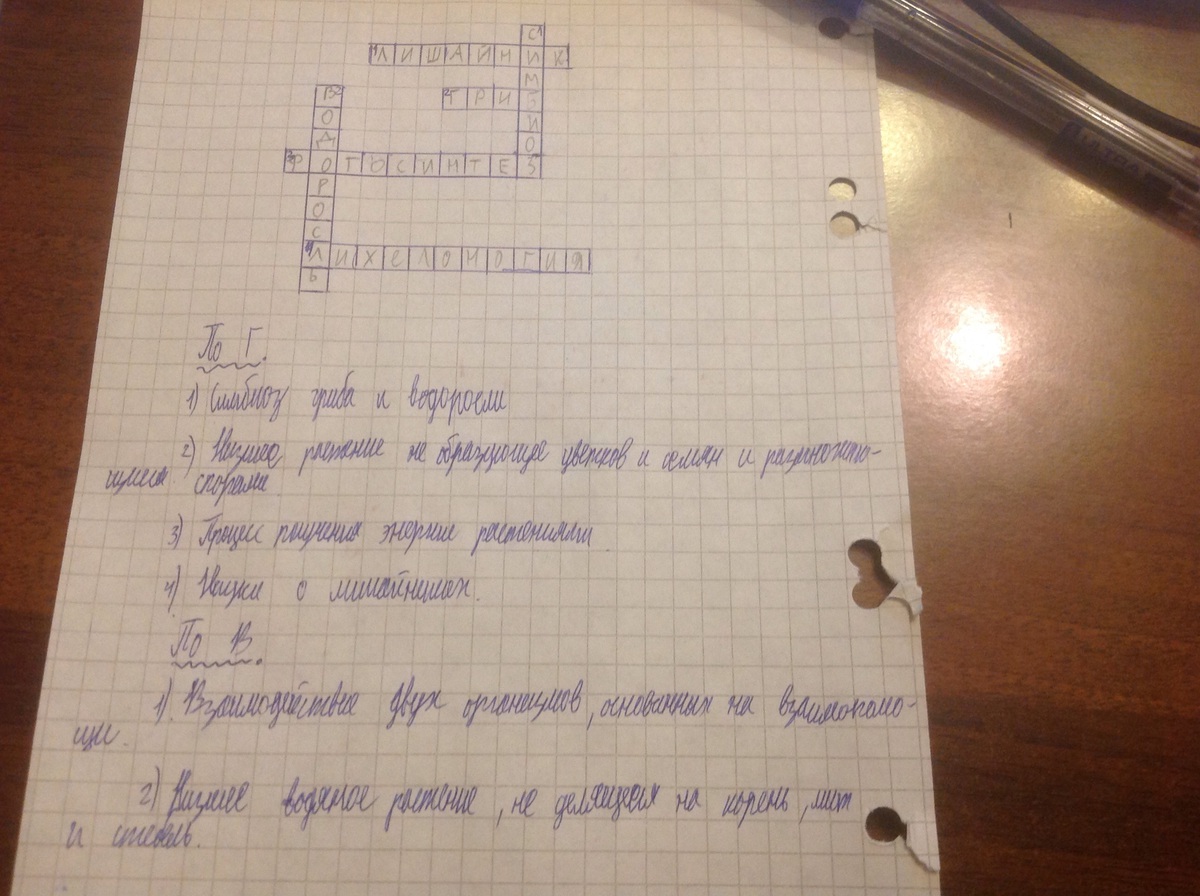 1СИМБИОЗ
1ЛИШАЙНИК
2ГРИБ
2ВОДОРОСЛЬ
3ФОТОСИНТЕЗ
4ЛИХЕЛОНОГИЯ
По Г.
1) Симбиоз гриба и водоросли
2) Низшее растение не образующее цветков и семян и размножаю-
щиеся спорами.
3) Процесс получения энергие растениями.
4) Наука о лишайниках.
По В.
1) Взаимодействие двух организмов, основанных на взаимопомо-
щи.
2) Низшее водяное растение, не делящееся на корень, лист
и стебель.